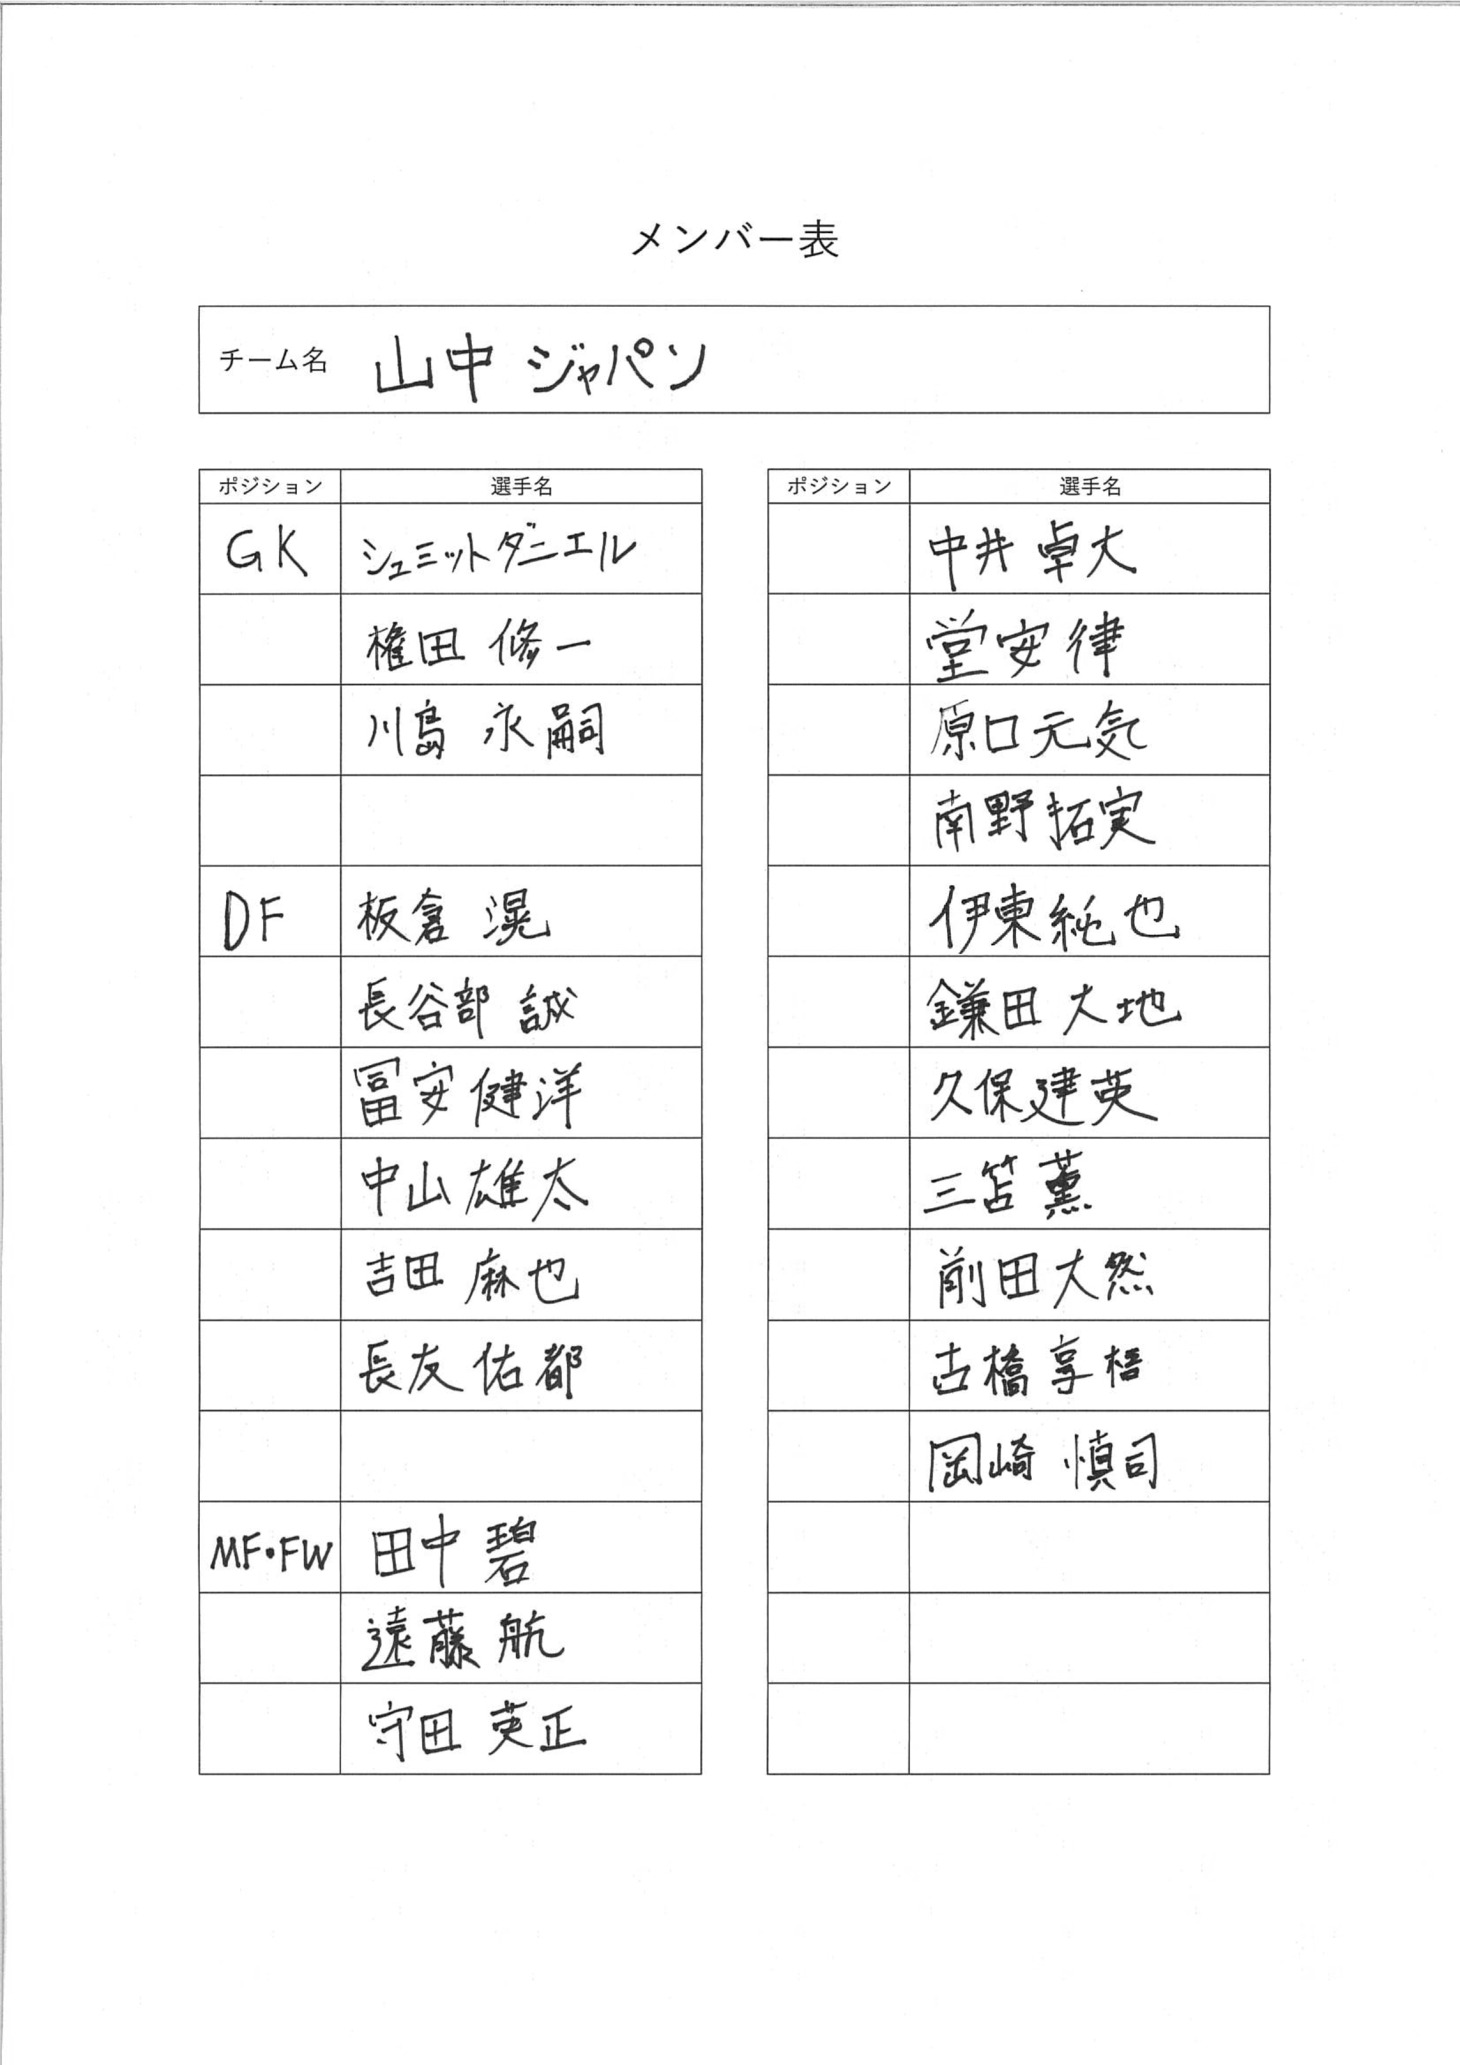 メンバー表
チーム名 山中 ジャパン
ポジション 選手名
GK シュミットダニエル
権田 修一
川島 永嗣
DF 板倉 滉
長谷部 誠
冨安 健洋
中山 雄太
吉田 麻也
長友 佑都
MF・FW 田中 碧
遠藤 航
守田 英正
ポジション 選手名
中井 卓大
堂安 律
原口元気
南野拓実
伊東純也
鎌田 大地
久保建英
三笘薫
前田大然
古橋享梧
岡崎 慎司